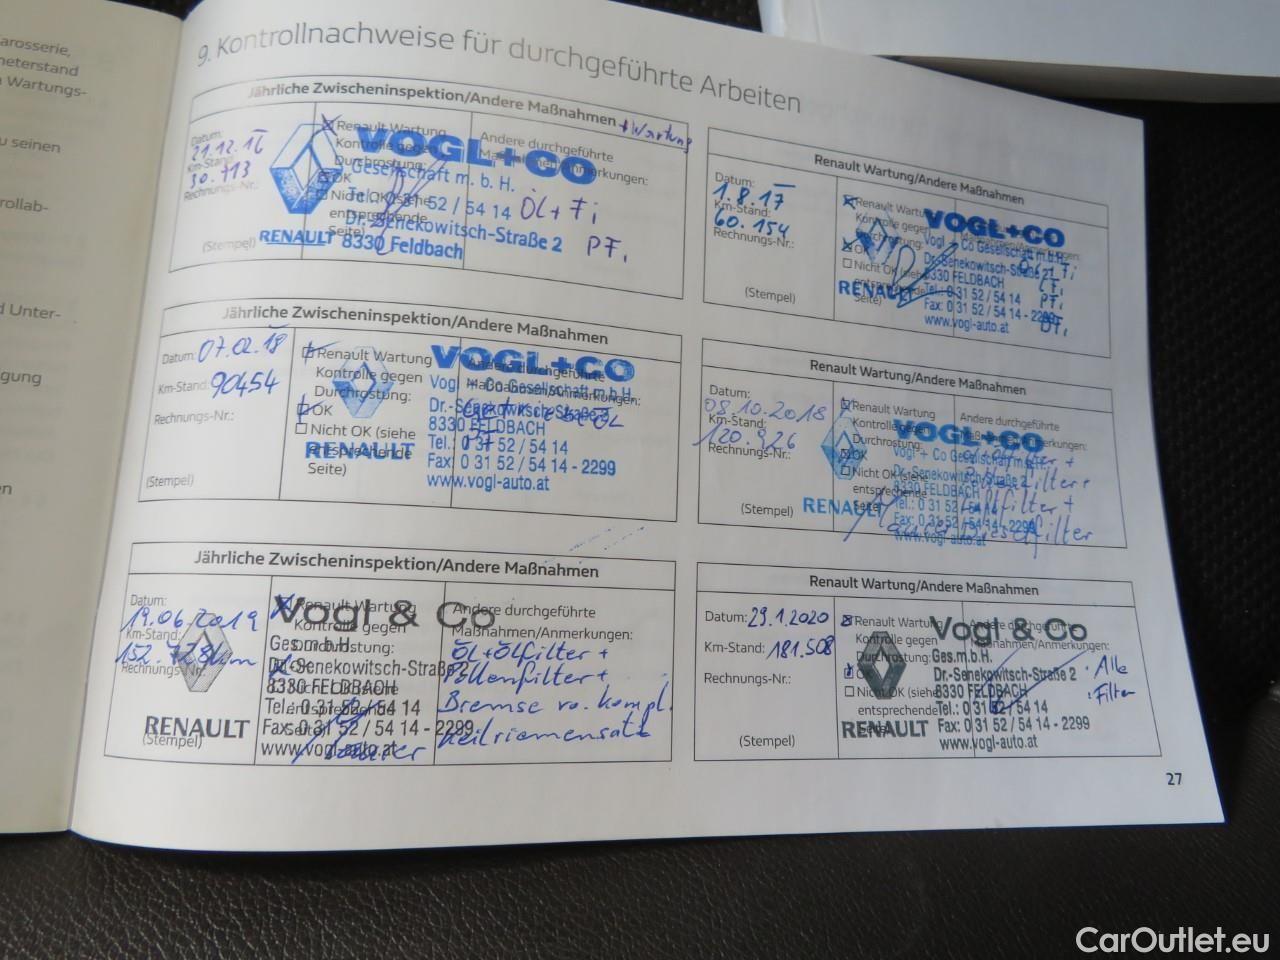 arosserie,
neterstand
Wartungs-
u seinen
rollab-
d Unter-
igung
en
9. Kontrollnachweise für durchgeführte Arbeiten
Jährliche Zwischeninspektion/Andere Maßnahmen + Wartung
Datum:
21.12.16
Km-Stand:
30.713
Rechnungs-Nr.:
(Stempel)
Renault Wartung
Kontrolle gegen
Durchrostung:
OK
Nicht OK (siehe
entsprechende
Seite)
Andere durchgeführte
Maßnahmen/Anmerkungen:
VOGL+CO
Gesellschaft m. b. H.
Tel. 0 31 52 / 54 14
Dr.-Senekowitsch-Straße 2
RENAULT 8330 Feldbach
ÖL + Fi
PFi
Renault Wartung/Andere Maßnahmen
Datum:
1.8.17
Km-Stand:
60.154
Rechnungs-Nr.:
(Stempel)
Renault Wartung
Kontrolle gegen
Durchrostung:
OK
Nicht OK (siehe
entsprechende
Seite)
VOGL+CO
Vogl + Co Gesellschaft m.b.H.
Dr.-Senekowitsch-Straße 2
8330 FELDBACH
RENAULT Tel.: 0 31 52 / 54 14
Fax: 0 31 52 / 54 14 - 2299
www.vogl-auto.at
LFi
PFi
Jährliche Zwischeninspektion/Andere Maßnahmen
Datum: 07.02.18
Km-Stand: 90454
Rechnungs-Nr.:
(Stempel)
Renault Wartung
Kontrolle gegen
Durchrostung:
OK
Nicht OK (siehe
entsprechende
Seite)
Andere durchgeführte
Maßnahmen/Anmerkungen:
VOGL+CO
Vogl + Co Gesellschaft m.b.H.
Dr.-Senekowitsch-Straße 2
8330 FELDBACH
Tel.: 0 31 52 / 54 14
RENAULT Fax: 0 31 52 / 54 14 - 2299
www.vogl-auto.at
Renault Wartung/Andere Maßnahmen
Datum:
08.10.2018
Km-Stand:
120.926
Rechnungs-Nr.:
(Stempel)
Renault Wartung
Kontrolle gegen
Durchrostung:
OK
Nicht OK (siehe
entsprechende
Seite)
Andere durchgeführte
Maßnahmen/Anmerkungen:
VOGL+CO
Vogl + Co Gesellschaft m.b.H.
Dr.-Senekowitsch-Straße 2
8330 FELDBACH
RENAULT Tel.: 0 31 52 / 54 14
Fax: 0 31 52 / 54 14 - 2299
www.vogl-auto.at
Pollenfilter +
Luftfilter +
Dieselfilter
Jährliche Zwischeninspektion/Andere Maßnahmen
Datum:
19.06.2019
Km-Stand:
Rechnungs-Nr.:
(Stempel)
Renault Wartung
Kontrolle gegen
Durchrostung:
OK
Nicht OK (siehe
entsprechende
Seite)
Andere durchgeführte
Maßnahmen/Anmerkungen:
Vogl & Co
Ges.m.b.H.
Dr.-Senekowitsch-Straße 2
8330 FELDBACH
Tel.: 0 31 52 / 54 14
RENAULT Fax: 0 31 52 / 54 14 - 2299
www.vogl-auto.at
Öl + Ölfilter +
Pollenfilter +
Bremse vo. kompl.
Keilriemensatz
Renault Wartung/Andere Maßnahmen
Datum: 29.1.2020
Km-Stand: 181.508
Rechnungs-Nr.:
(Stempel)
Renault Wartung
Kontrolle gegen
Durchrostung:
OK
Nicht OK (siehe
entsprechende
Seite)
Andere durchgeführte
Maßnahmen/Anmerkungen:
Vogl & Co
Ges.m.b.H.
Dr.-Senekowitsch-Straße 2
8330 FELDBACH
Tel.: 0 31 52 / 54 14
RENAULT Fax: 0 31 52 / 54 14 - 2299
www.vogl-auto.at
· Alle
Filter
27
CarOutlet.eu